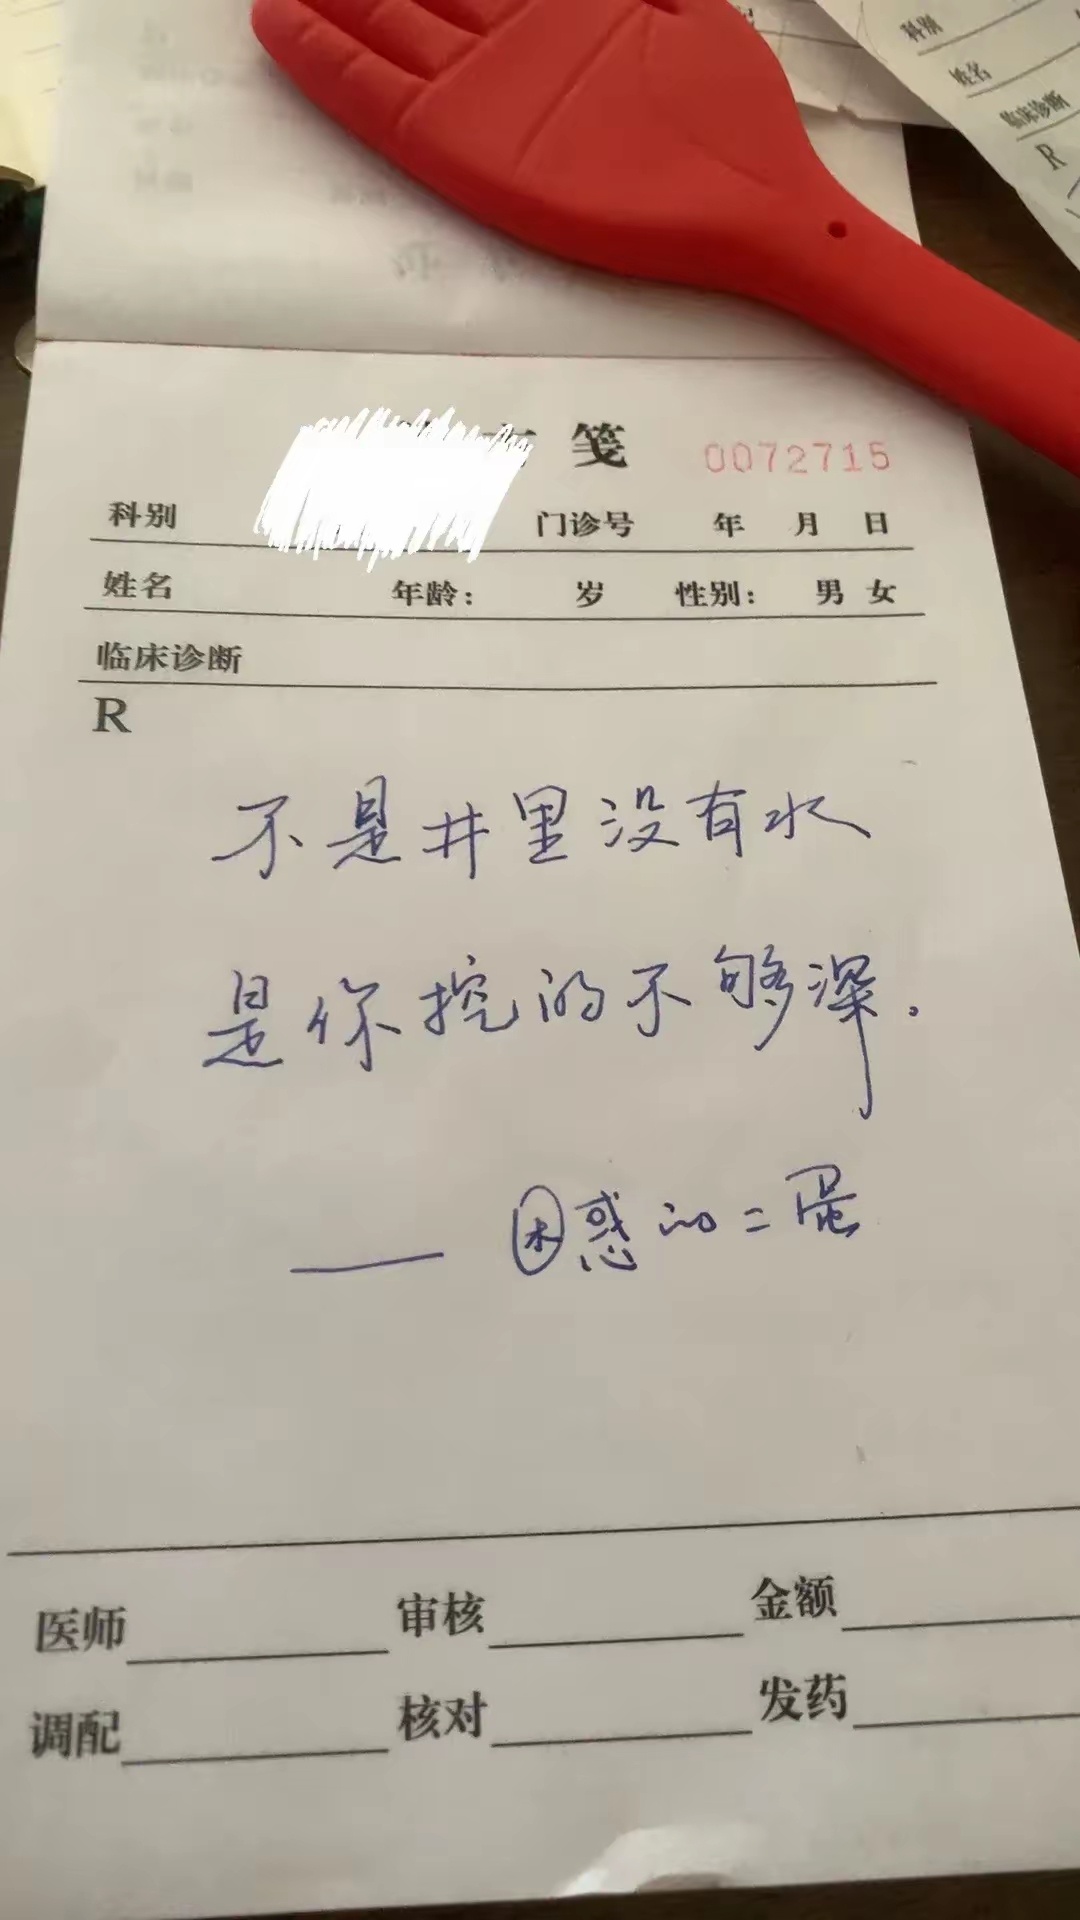 科别
姓名
临床诊断
R
笺 0072715
科别 门诊号 年 月 日
姓名 年龄: 岁 性别: 男 女
临床诊断
R
不是井里没有水
是你挖的不够深.
—— 困惑的二蛋
医师 审核 金额
调配 核对 发药